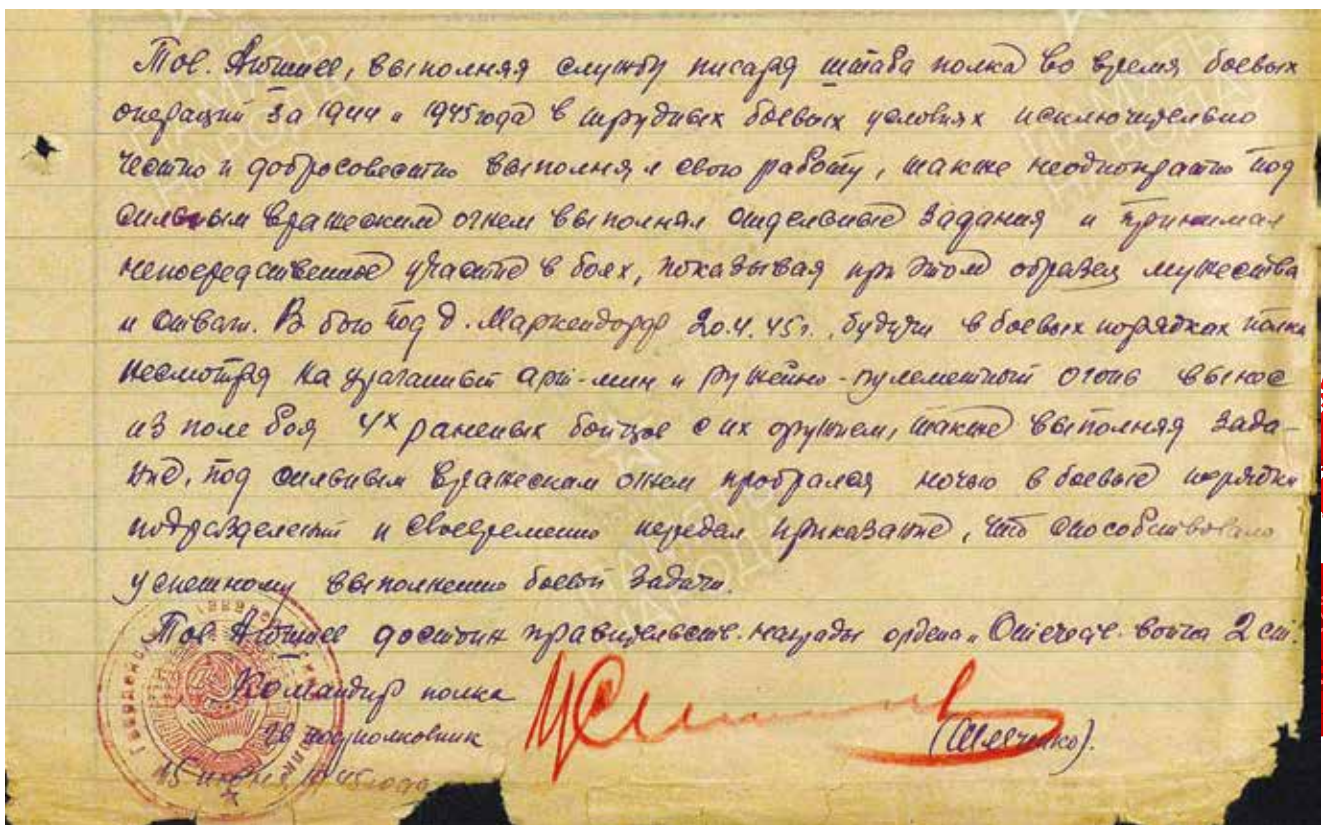 Тов. Агишев, выполняя службу писаря штаба полка во время боевых
операций за 1944 и 1945 года в трудных боевых условиях исключительно
честно и добросовестно выполнял свою работу, также неоднократно под
сильным вражеским огнем выполнял отдельные задания и принимал
непосредственное участие в боях, показывая при этом образец мужества
и отваги. В бою под д. Маркендорф 20.4.45г., будучи в боевых порядках полка
несмотря на ураганный арт-мин и ружейно-пулеметный огонь вынес
из поле боя 4х раненых бойцов с их оружием, также выполняя зада-
ние, под сильным вражеским огнем пробрался ночью в боевые порядки
подразделений и своевременно передал приказание, что способствовало
успешному выполнению боевой задачи.
Тов. Агишев достоин правительств. награды ордена "Отечеств. война 2 ст.
Командир полка
гв подполковник
15 1945 года